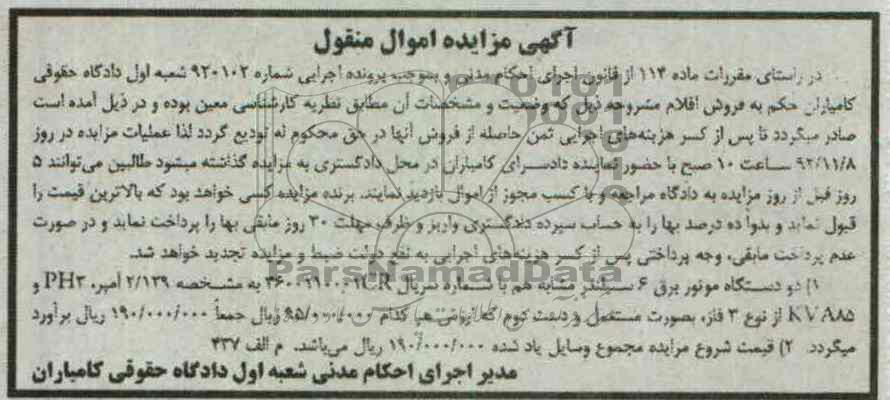 آگهی مزایده اموال منقول
در راستای مقررات ماده ۱۱۴ از قانون اجرای احکام مدنی و بموجب پرونده اجرایی شماره ۹۲۰۱۰۲ شعبه اول دادگاه حقوقی
کامیاران حکم به فروش اقلام مشروحه ذیل که وضعیت و مشخصات آن مطابق نظریه کارشناسی معین بوده و در ذیل آمده است
صادر میگردد تا پس از کسر هزینه‌های اجرایی ثمن حاصله از فروش آنها در حق محکوم له تودیع گردد لذا عملیات مزایده در روز
۹۲/۱۱/۸ ساعت ۱۰ صبح با حضور نماینده دادسرای کامیاران در محل دادگستری به مزایده گذاشته میشود طالبین می‌توانند ۵
روز قبل از روز مزایده به دادگاه مراجعه و با کسب مجوز از اموال بازدید نمایند. برنده مزایده کسی خواهد بود که بالاترین قیمت را
قبول نماید و بدوا ده درصد بها را به حساب سپرده دادگستری واریز و ظرف مهلت ۳۰ روز مابقی بها را پرداخت نماید و در صورت
عدم پرداخت مابقی، وجه پرداختی پس از کسر هزینه‌های اجرایی به نفع دولت ضبط و مزایده تجدید خواهد شد.
۱) دو دستگاه موتور برق ۶ سیلندر مشابه هم با شماره سریال به مشخصه ۲/۱۳۹ آمپر، PH۳ و
KVA۸۵ از نوع ۳ فاز، بصورت مستعمل و دست دوم که ارزش هر کدام ۹۵/۰۰۰/۰۰۰ ریال جمعاً ۱۹۰/۰۰۰/۰۰۰ ریال برآورد
میگردد. ۲) قیمت شروع مزایده مجموع وسایل یاد شده ۱۹۰/۰۰۰/۰۰۰ ریال می‌باشد. م الف ۴۳۷
مدیر اجرای احکام مدنی شعبه اول دادگاه حقوقی کامیاران
ParsNamadData